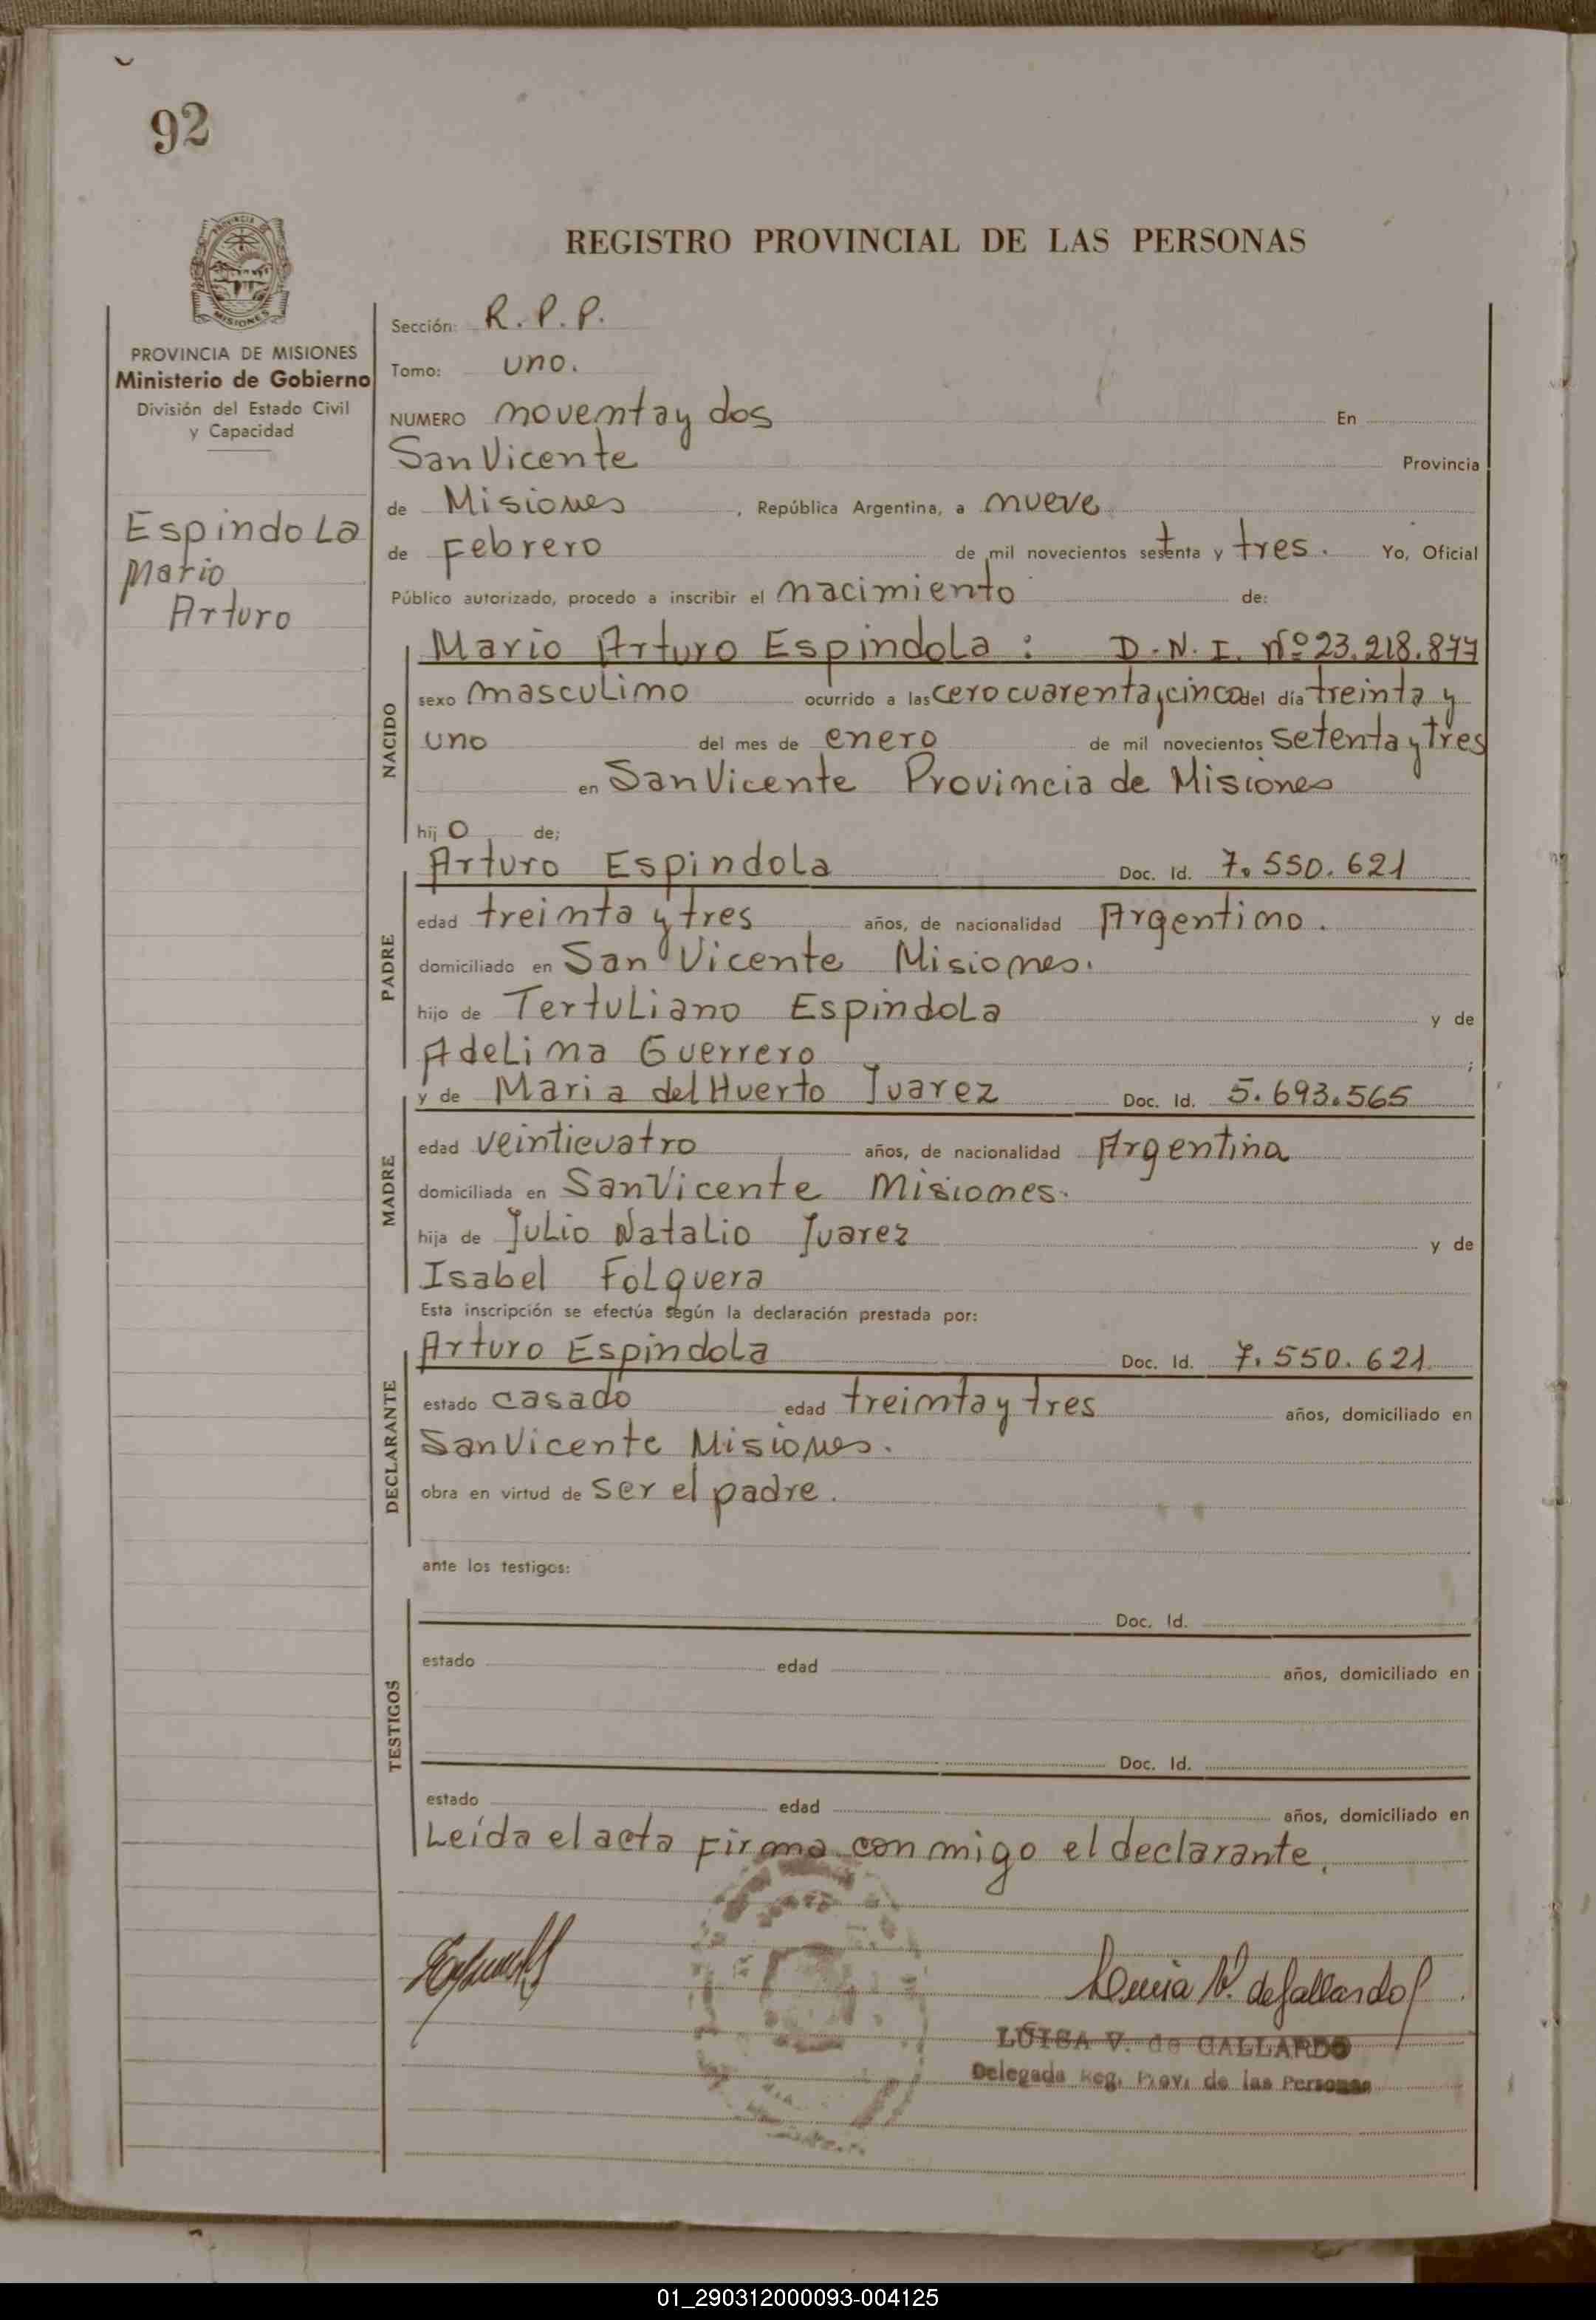 92
REGISTRO PROVINCIAL DE LAS PERSONAS
PROVINCIA DE
MISIONES
PROVINCIA DE MISIONES
Ministerio de Gobierno
División del Estado Civil
y Capacidad
Espindola
Mario
Arturo
Sección: R.P.P.
Tomo: uno.
NUMERO noventa y dos En
San Vicente Provincia
de Misiones, República Argentina, a nueve
de Febrero de mil novecientos setenta y tres. Yo, Oficial
Público autorizado, procedo a inscribir el nacimiento de:
NACIDO
Mario Arturo Espindola: D.N.I. Nº 23.218.877
sexo masculino ocurrido a las cero cuarenta y cinco del día treinta y
uno del mes de enero de mil novecientos setenta y tres
en San Vicente Provincia de Misiones
hijo de;
PADRE
Arturo Espindola Doc. Id. 7.550.621
edad treinta y tres años, de nacionalidad Argentino.
domiciliado en San Vicente Misiones.
hijo de Tertuliano Espindola y de
Adelina Guerrero;
MADRE
y de Maria del Huerto Juarez Doc. Id. 5.693.565
edad veinticuatro años, de nacionalidad Argentina
domiciliada en San Vicente Misiones.
hija de Julio Natalio Juarez y de
Isabel Folquera
Esta inscripción se efectúa según la declaración prestada por:
DECLARANTE
Arturo Espindola Doc. Id. 7.550.621
estado casado edad treinta y tres años, domiciliado en
San Vicente Misiones.
obra en virtud de ser el padre.
ante los testigos:
TESTIGOS
Doc. Id.
estado edad años, domiciliado en
Doc. Id.
estado edad años, domiciliado en
Leída el acta firma con migo el declarante.
Luisa V. de Gallardo
LUISA V. de GALLARDO
Delegada Reg. Prov. de las Personas
01_290312000093-004125